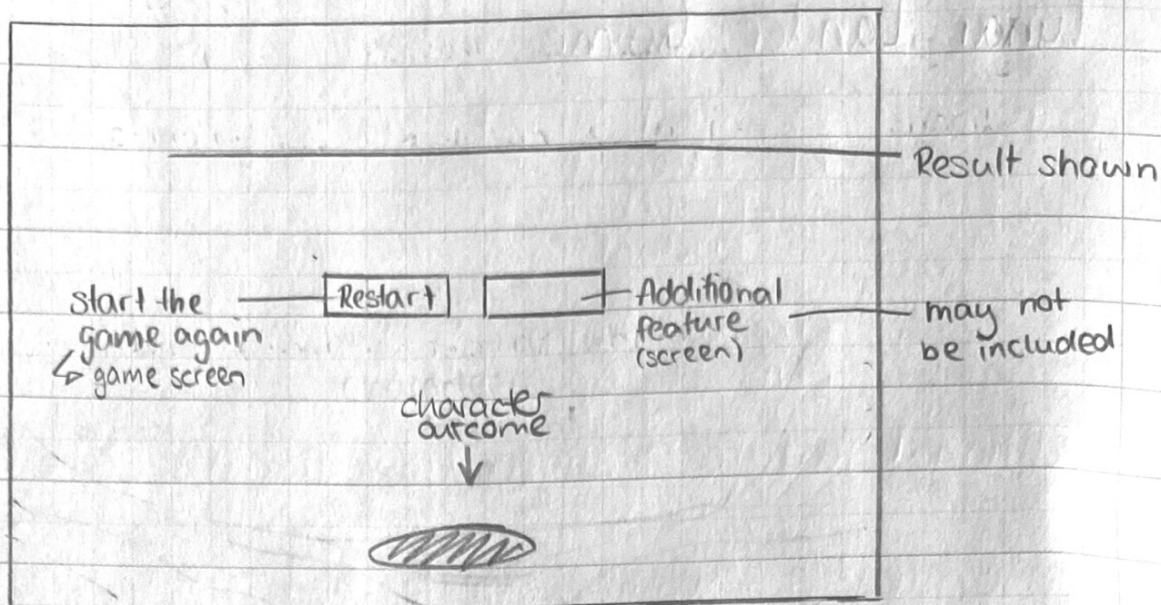 Result shown
start the
game again
↳ game screen
Restart
Additional
feature
(screen)
may not
be included
character
outcome